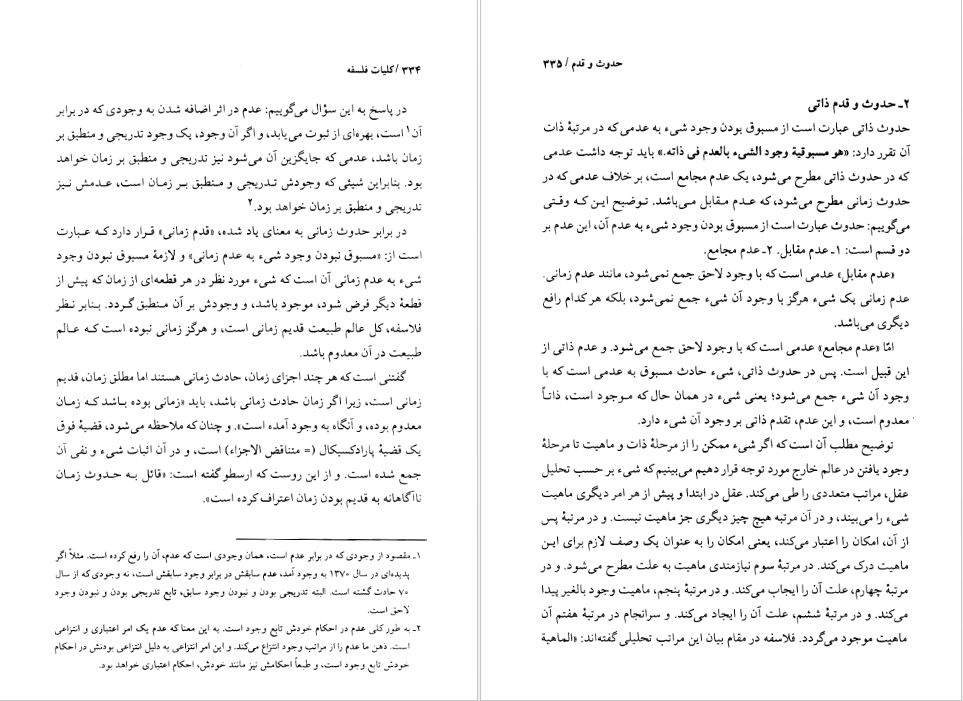 ۳۳۴ / کلیات فلسفه
در پاسخ به این سؤال می‌گوییم: عدم در اثر اضافه شدن به وجودی که در برابر
آن۱ است، بهره‌ای از ثبوت می‌یابد، و اگر آن وجود، یک وجود تدریجی و منطبق بر
زمان باشد، عدمی که جایگزین آن می‌شود نیز تدریجی و منطبق بر زمان خواهد
بود. بنابراین شیئی که وجودش تدریجی و منطبق بر زمان است، عدمش نیز
تدریجی و منطبق بر زمان خواهد بود.۲
در برابر حدوث زمانی به معنای یاد شده، «قدم زمانی» قرار دارد که عبارت
است از: «مسبوق نبودن وجود شیء به عدم زمانی» و لازمهٔ مسبوق نبودن وجود
شیء به عدم زمانی آن است که شیء مورد نظر در هر قطعه‌ای از زمان که پیش از
قطعهٔ دیگر فرض شود، موجود باشد، و وجودش بر آن منطبق گردد. بنابر نظر
فلاسفه، کل عالم طبیعت قدیم زمانی است، و هرگز زمانی نبوده است که عالم
طبیعت در آن معدوم باشد.
گفتنی است که هر چند اجزای زمان، حادث زمانی هستند اما مطلق زمان، قدیم
زمانی است، زیرا اگر زمان حادث زمانی باشد، باید «زمانی بوده باشد که زمان
معدوم بوده، و آنگاه به وجود آمده است». و چنان‌که ملاحظه می‌شود، قضیهٔ فوق
یک قضیهٔ پارادکسیکال (= متناقض الاجزاء) است، و در آن اثبات شیء و نفی آن
جمع شده است. و از این روست که ارسطو گفته است: «قائل به حدوث زمان
ناآگاهانه به قدیم بودن زمان اعتراف کرده است».
۱ـ مقصود از وجودی که در برابر عدم است، همان وجودی است که عدم، آن را رفع کرده است. مثلاً اگر
پدیده‌ای در سال ۱۳۷۰ به وجود آمد، عدم سابقش در برابر وجود سابقش است، نه وجودی که از سال
۷۰ حادث گشته است. البته تدریجی بودن و نبودن وجود سابق، تابع تدریجی بودن و نبودن وجود
لاحق است.
۲ـ به طور کلی عدم در احکام خودش تابع وجود است. به این معنا که عدم یک امر اعتباری و انتزاعی
است. ذهن ما عدم را از مراتب وجود انتزاع می‌کند. و این امر انتزاعی به دلیل انتزاعی بودنش در احکام
خودش تابع وجود است، و طبعاً احکامش نیز مانند خودش، احکام اعتباری خواهد بود.
حدوث و قدم / ۳۳۵
۲ـ حدوث و قدم ذاتی
حدوث ذاتی عبارت است از مسبوق بودن وجود شیء به عدمی که در مرتبهٔ ذات
آن تقرر دارد: «هو مسبوقیة وجود الشیء بالعدم فی ذاته.» باید توجه داشت عدمی
که در حدوث ذاتی مطرح می‌شود، یک عدم مجامع است، بر خلاف عدمی که در
حدوث زمانی مطرح می‌شود، که عدم مقابل می‌باشد. توضیح این‌که وقتی
می‌گوییم: حدوث عبارت است از مسبوق بودن وجود شیء به عدم آن، این عدم بر
دو قسم است: ۱ـ عدم مقابل. ۲ـ عدم مجامع.
«عدم مقابل» عدمی است که با وجود لاحق جمع نمی‌شود، مانند عدم زمانی.
عدم زمانی یک شیء هرگز با وجود آن شیء جمع نمی‌شود، بلکه هر کدام رافع
دیگری می‌باشد.
امّا «عدم مجامع» عدمی است که با وجود لاحق جمع می‌شود. و عدم ذاتی از
این قبیل است. پس در حدوث ذاتی، شیء حادث مسبوق به عدمی است که با
وجود آن شیء جمع می‌شود؛ یعنی شیء در همان حال که موجود است، ذاتاً
معدوم است، و این عدم، تقدم ذاتی بر وجود آن شیء دارد.
توضیح مطلب آن است که اگر شیء ممکن را از مرحلهٔ ذات و ماهیت تا مرحلهٔ
وجود یافتن در عالم خارج مورد توجه قرار دهیم می‌بینیم که شیء بر حسب تحلیل
عقل، مراتب متعددی را طی می‌کند. عقل در ابتدا و پیش از هر امر دیگری ماهیت
شیء را می‌بیند، و در آن مرتبه هیچ چیز دیگری جز ماهیت نیست. و در مرتبهٔ پس
از آن، امکان را اعتبار می‌کند، یعنی امکان را به عنوان یک وصف لازم برای این
ماهیت درک می‌کند. در مرتبهٔ سوم نیازمندی ماهیت به علت مطرح می‌شود. و در
مرتبهٔ چهارم، علت آن را ایجاب می‌کند. و در مرتبهٔ پنجم، ماهیت وجود بالغیر پیدا
می‌کند. و در مرتبهٔ ششم، علت آن را ایجاد می‌کند. و سرانجام در مرتبهٔ هفتم آن
ماهیت موجود می‌گردد. فلاسفه در مقام بیان این مراتب تحلیلی گفته‌اند: «الماهیة